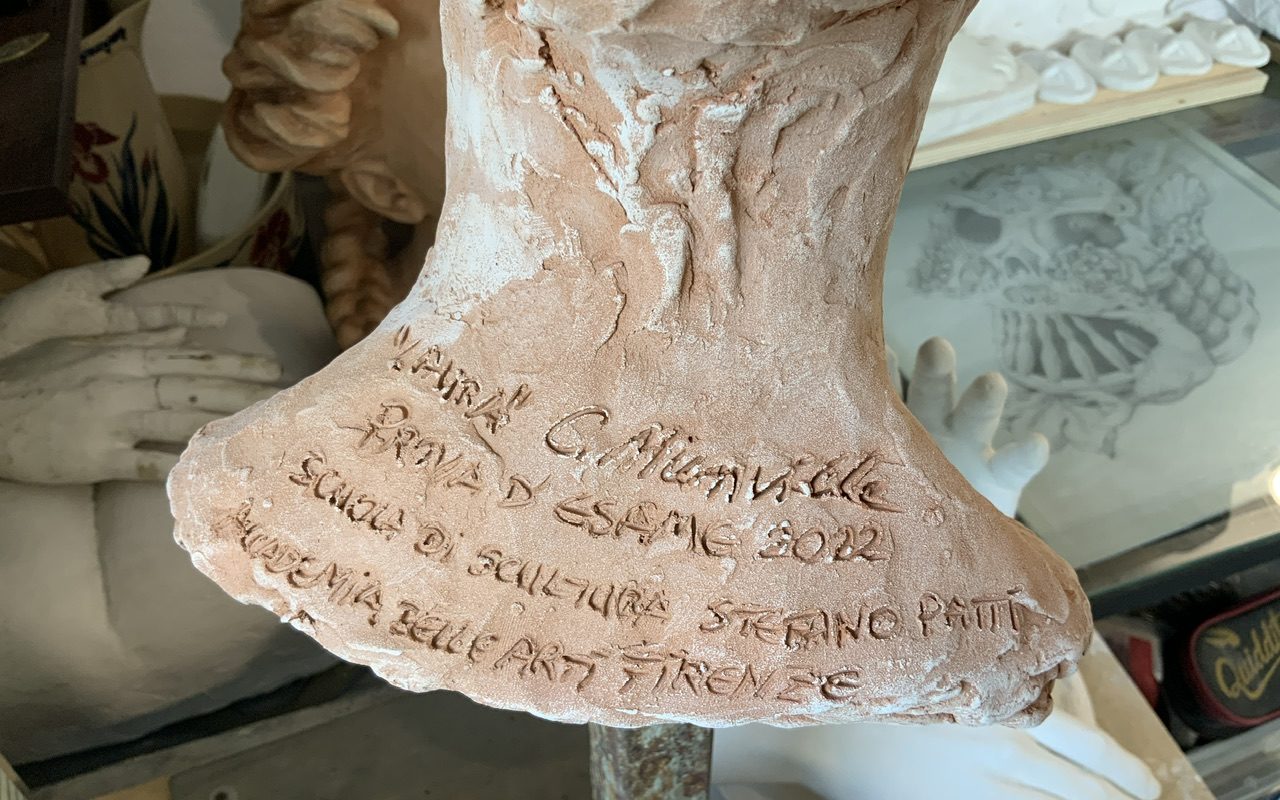 C.
PROVA D' ESAME 2022
SCUOLA DI SCULTURA STEFANO PATTI
ACCADEMIA BELLE ARTI FIRENZE